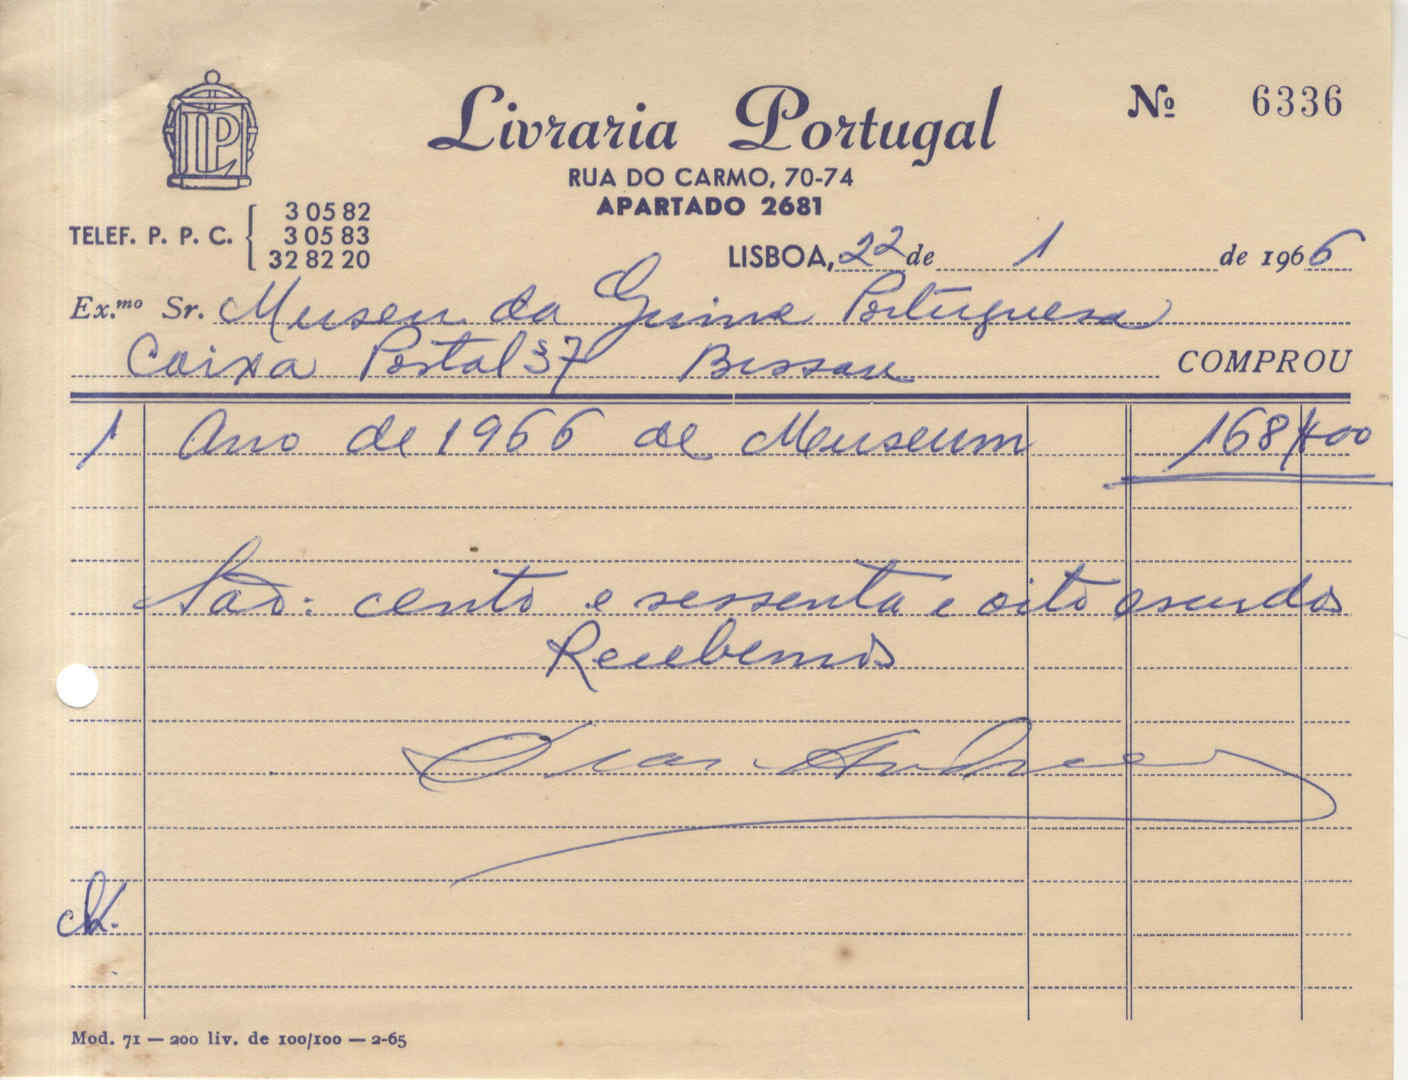 LP
Livraria Portugal
Nº 6336
RUA DO CARMO, 70-74
APARTADO 2681
TELEF. P. P. C. { 3 05 82
3 05 83
32 82 20
LISBOA, 22 de 1 de 1966
Ex.mo Sr. Museu da Guine Portuguesa
Caixa Postal 37 Bissau COMPROU
1 Ano de 1966 de Museum 168$00
São: cento e sessenta e oito escudos
Recebemos
Mod. 71 — 200 liv. de 100/100 — 2-65